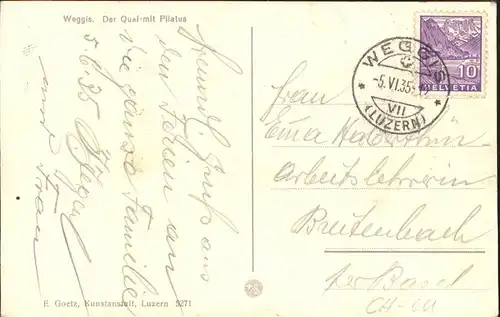 Weggis. Der Quai mit Pilatus
Freundl. Gruss aus
den Ferien an
die ganze Familie
5.6.35
und Frau
E. Goetz, Kunstanstalt, Luzern 5271
WEGGIS
-5.VI.35-
VII
(LUZERN)
10
HELVETIA
Frau
Arbeitslehrerin
Breitenbach
per Basel
CH-